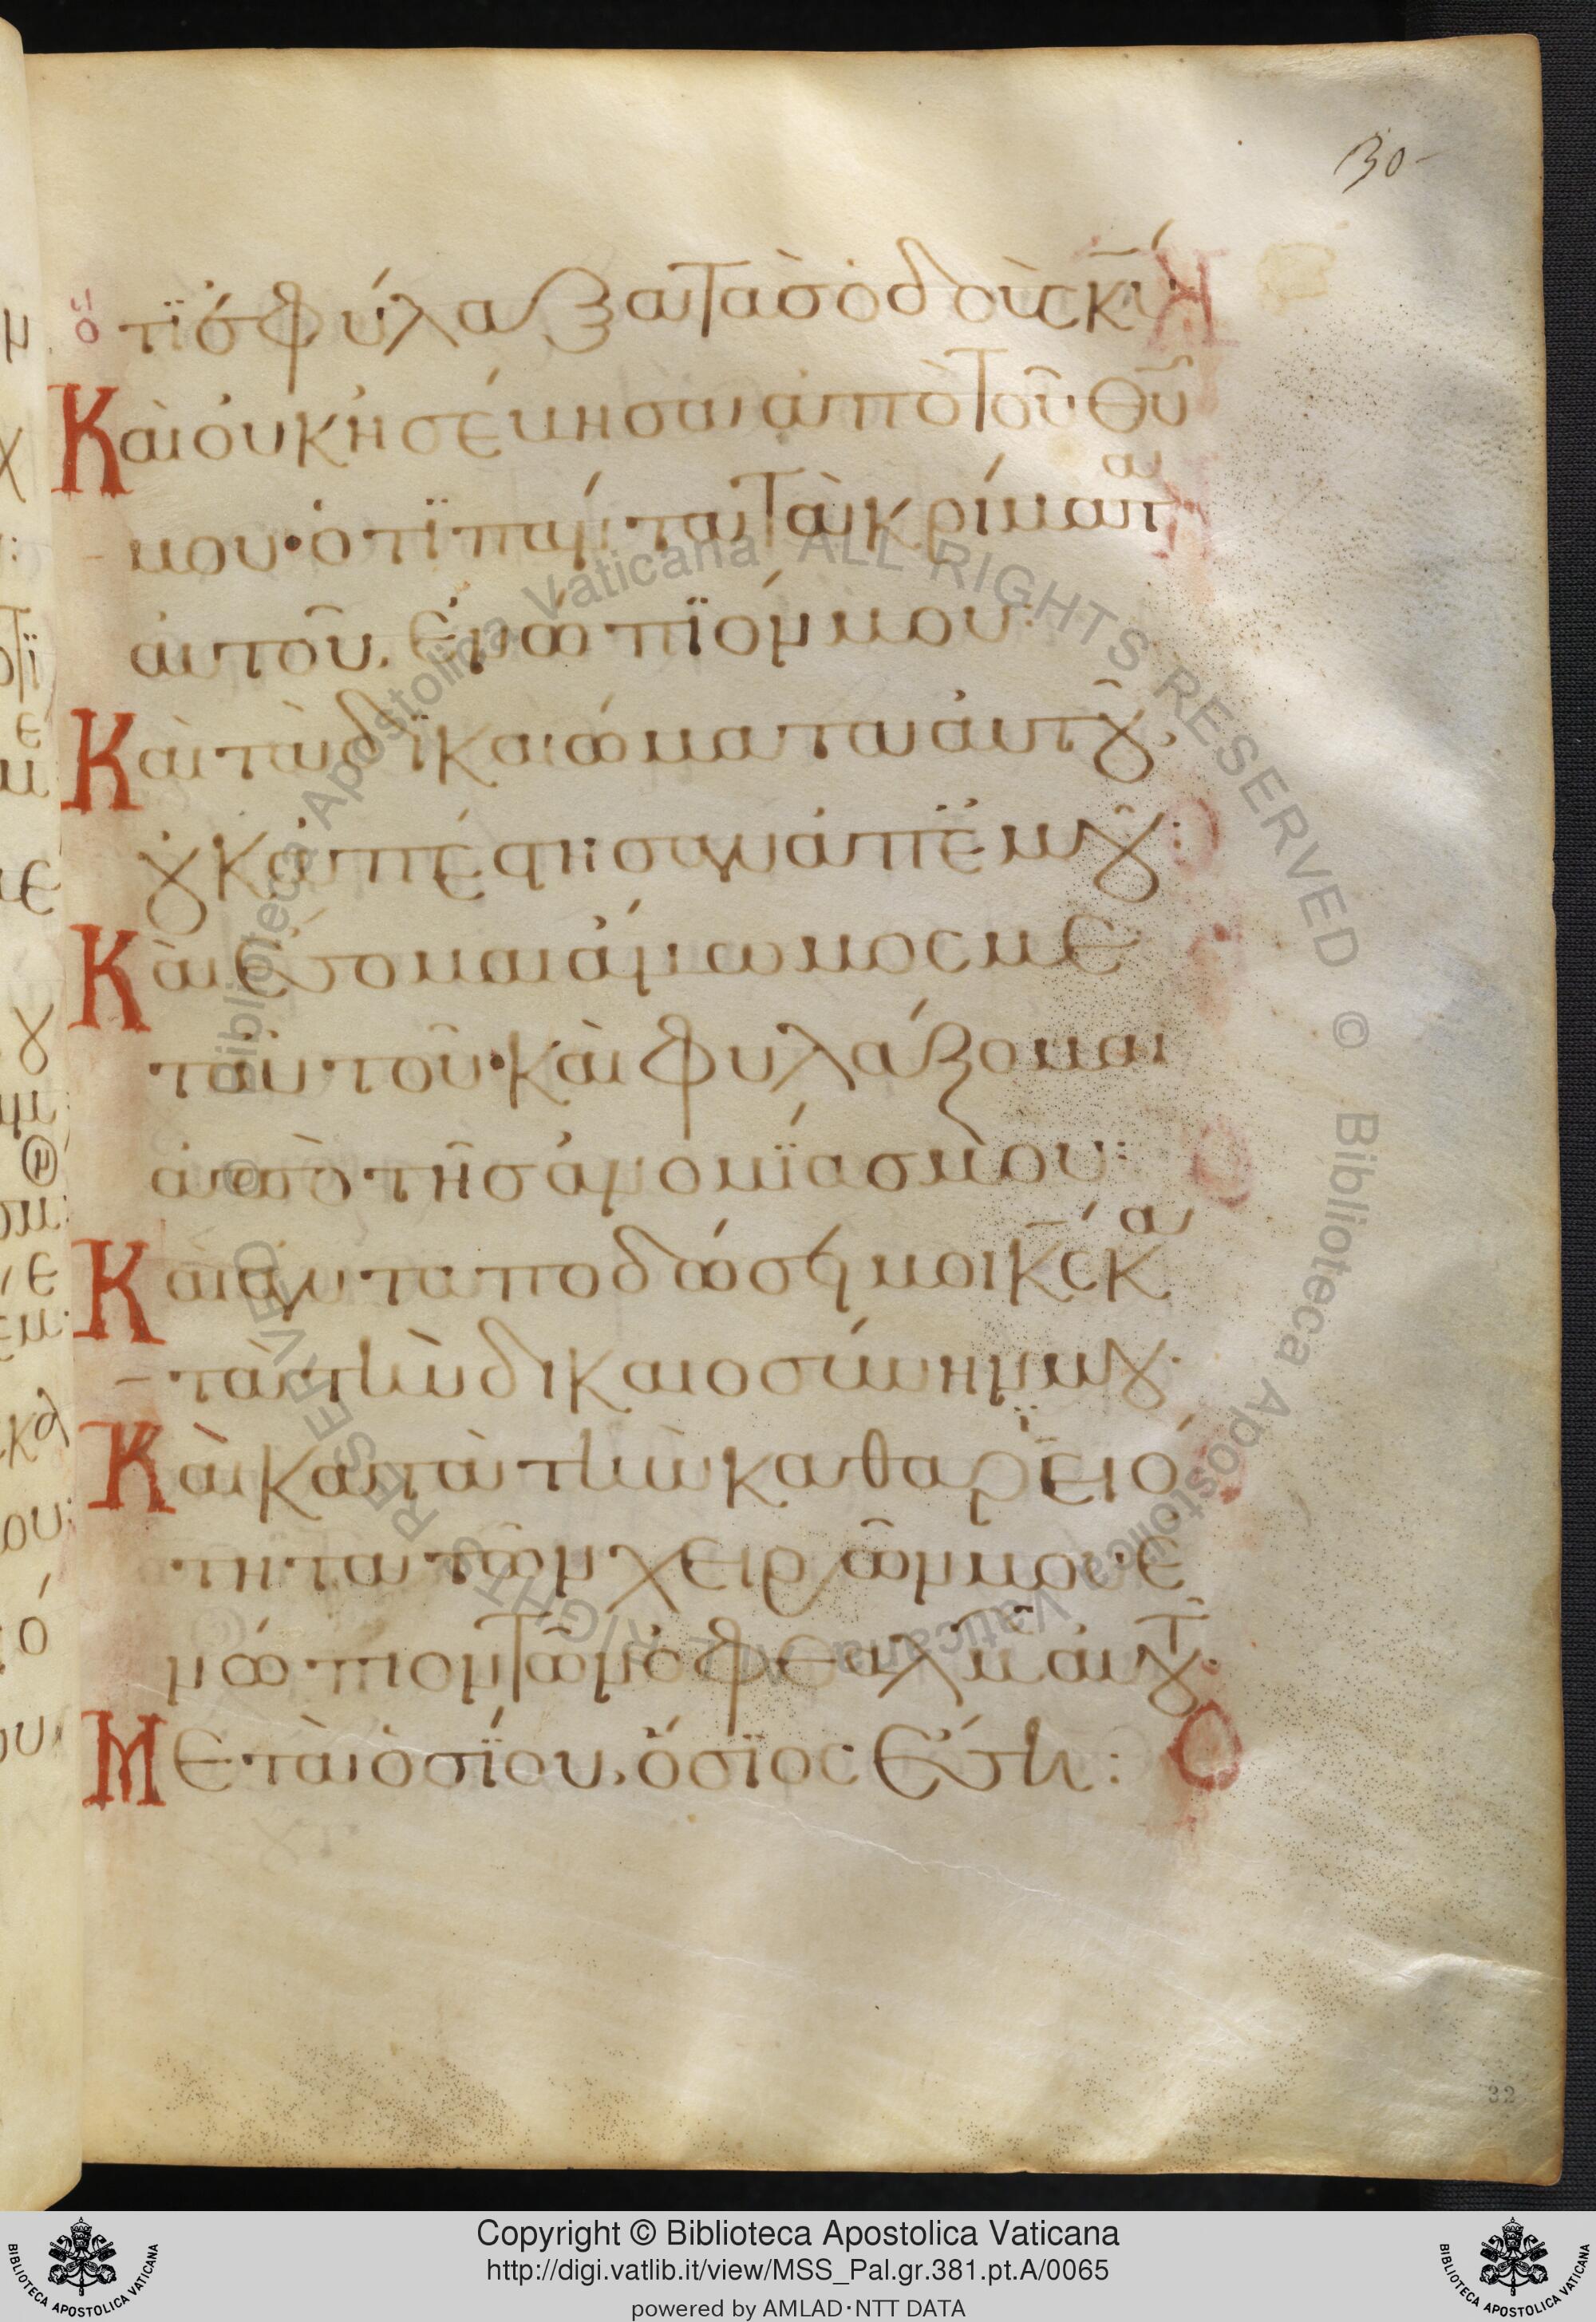 30
ὅτι ἐφύλαξα τὰς ὁδοὺς κ̅υ̅
Καὶ οὐκ ἠσέβησα ἀπὸ τοῦ θ̅υ̅
μου· ὅτι πάντα τὰ κρίματα
αὐτοῦ, ἐνώπιόν μου:
Καὶ τὰ δικαιώματα αὐτοῦ,
οὐκ ἀπέστησαν ἀπ' ἐμοῦ:
Καὶ ἔσομαι ἄμωμος με
τ' αὐτοῦ· καὶ φυλάξομαι
ἀπὸ τῆς ἀνομίας μου:
Καὶ ἀνταποδώσει μοι κ̅ς̅ κα
τὰ τὴν δικαιοσύνην μου·
Καὶ κατὰ τὴν καθαρειό
τητα τῶν χειρῶν μου ἐ
νώπιον τῶν ὀφθαλμῶν αὐτοῦ·
Μετὰ ὁσίου, ὅσιος ἔση:
32
Copyright © Biblioteca Apostolica Vaticana
http://digi.vatlib.it/view/MSS_Pal.gr.381.pt.A/0065
powered by AMLAD·NTT DATA
BIBLIOTECA APOSTOLICA VATICANA
BIBLIOTECA APOSTOLICA VATICANA
© Biblioteca Apostolica Vaticana ALL RIGHTS RESERVED © Biblioteca Apostolica Vaticana ALL RIGHTS RESERVED